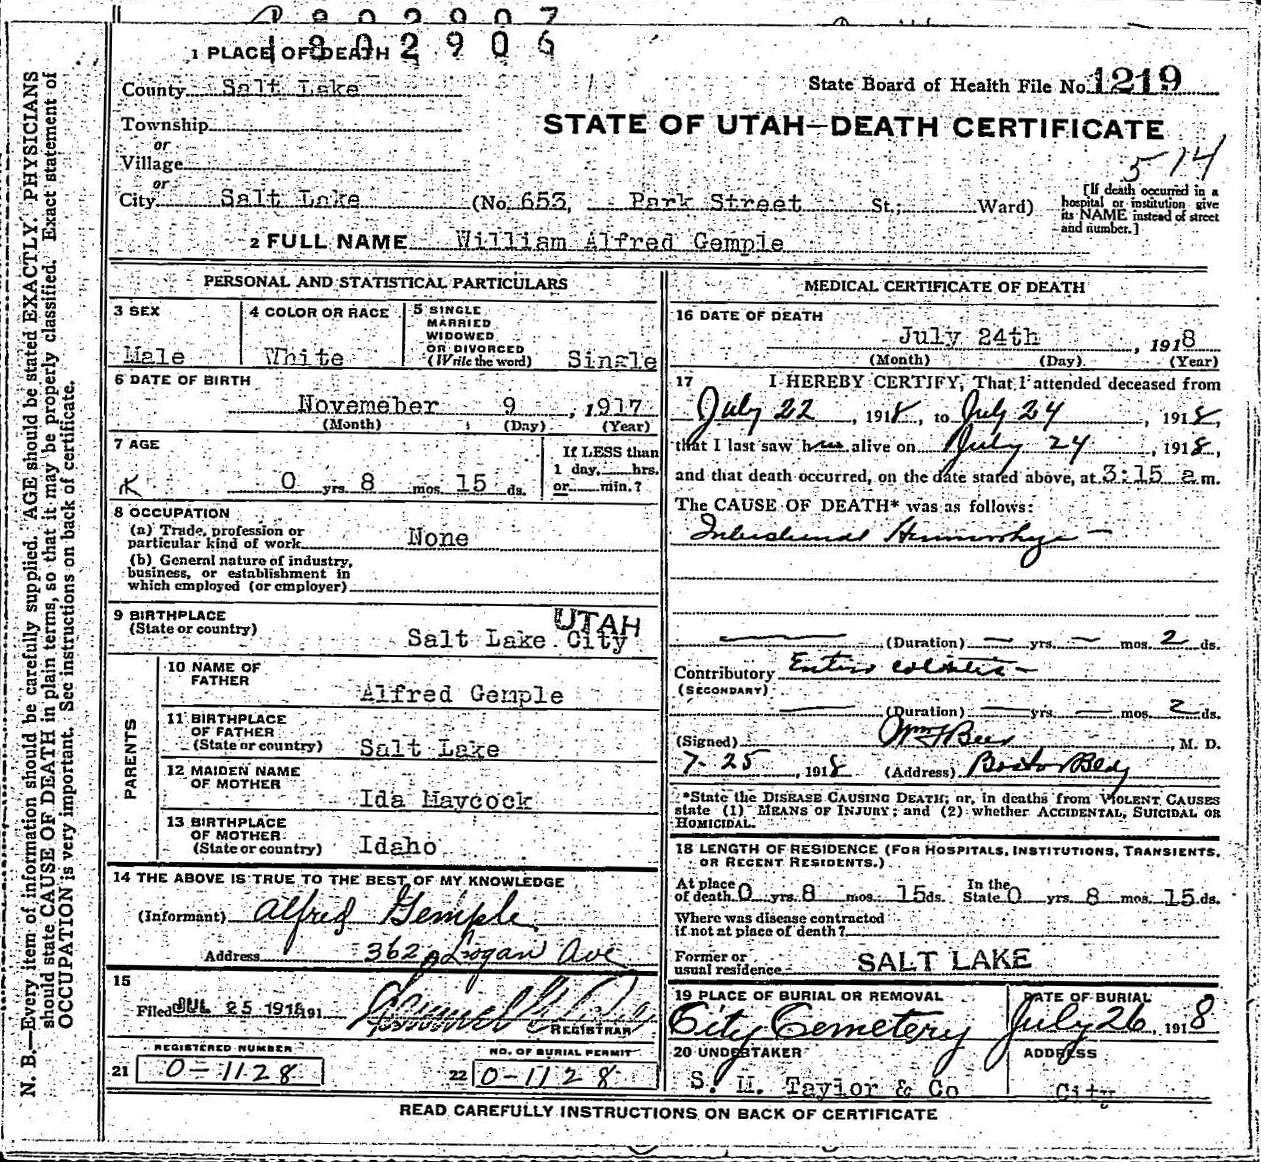 1802907
1802906
1 PLACE OF DEATH
County Salt Lake
State Board of Health File No. 1219
Township
or
Village
or
City Salt Lake (No. 653, Park Street St.; Ward)
STATE OF UTAH—DEATH CERTIFICATE
514
[If death occurred in a
hospital or institution give
its NAME instead of street
and number.]
2 FULL NAME William Alfred Gemple
PERSONAL AND STATISTICAL PARTICULARS
3 SEX
Male
4 COLOR OR RACE
White
5 SINGLE
MARRIED
WIDOWED
OR DIVORCED
(Write the word) Single
6 DATE OF BIRTH
Novemeber 9, 1917
(Month) (Day) (Year)
7 AGE
0 yrs. 8 mos. 15 ds.
If LESS than
1 day, hrs.
or min.?
8 OCCUPATION
(a) Trade, profession or
particular kind of work None
(b) General nature of industry,
business, or establishment in
which employed (or employer)
9 BIRTHPLACE
(State or country) Salt Lake City
UTAH
PARENTS
10 NAME OF
FATHER
Alfred Gemple
11 BIRTHPLACE
OF FATHER
(State or country) Salt Lake
12 MAIDEN NAME
OF MOTHER
Ida Maycock
13 BIRTHPLACE
OF MOTHER
(State or country) Idaho
14 THE ABOVE IS TRUE TO THE BEST OF MY KNOWLEDGE
(Informant) Alfred Gemple
Address 362 Logan Ave
15
Filed JUL 25 1918 191
REGISTRAR
REGISTERED NUMBER
21 0-1128
NO. OF BURIAL PERMIT
22 0-1128
MEDICAL CERTIFICATE OF DEATH
16 DATE OF DEATH
July 24th, 1918
(Month) (Day) (Year)
17 I HEREBY CERTIFY, That I attended deceased from
July 22, 1918, to July 24, 1918,
that I last saw him alive on July 24, 1918,
and that death occurred, on the date stated above, at 3:15 a m.
The CAUSE OF DEATH* was as follows:
Intestinal Hemorrhage —
(Duration) — yrs. — mos. 2 ds.
Contributory Entero colitis —
(SECONDARY)
(Duration) — yrs. — mos. 2 ds.
(Signed) Wm F Beer, M. D.
7-25, 1918 (Address) Boston Bldg
*State the DISEASE CAUSING DEATH; or, in deaths from VIOLENT CAUSES
state (1) MEANS OF INJURY; and (2) whether ACCIDENTAL, SUICIDAL OR
HOMICIDAL.
18 LENGTH OF RESIDENCE (FOR HOSPITALS, INSTITUTIONS, TRANSIENTS,
OR RECENT RESIDENTS.)
At place
of death 0 yrs. 8 mos. 15 ds. In the
State 0 yrs. 8 mos. 15 ds.
Where was disease contracted
if not at place of death?
Former or
usual residence SALT LAKE
19 PLACE OF BURIAL OR REMOVAL
City Cemetery
DATE OF BURIAL
July 26, 1918
20 UNDERTAKER
S. M. Taylor & Co
ADDRESS
City
READ CAREFULLY INSTRUCTIONS ON BACK OF CERTIFICATE
N. B.—Every item of information should be carefully supplied. AGE should be stated EXACTLY. PHYSICIANS
should state CAUSE OF DEATH in plain terms, so that it may be properly classified. Exact statement of
OCCUPATION is very important. See instructions on back of certificate.